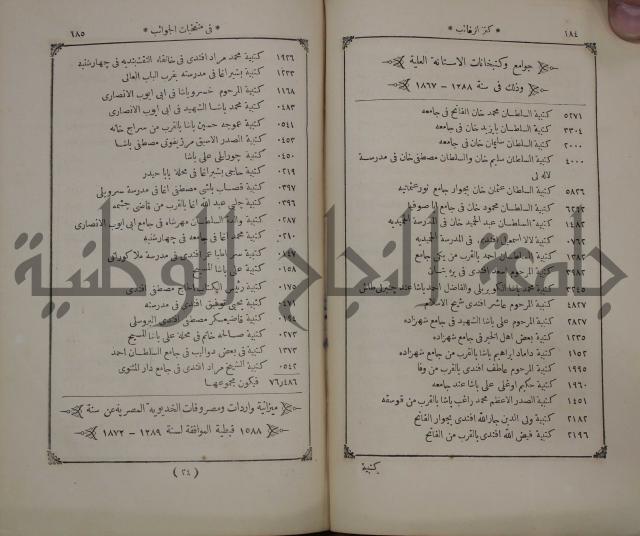 ١٨٤ * كنز الرغائب *
جوامع وكتبخانات الاستانة العلية
وذلك فى سنة ١٢٨٨ - ١٨٦٧
٥٢٧١ كتبية السلطان محمد خان الفاتح فى جامعه
٣٣٠٤ كتبية السلطان بايزيد خان فى جامعه
٢٠٠٠ كتبية السلطان سليمان خان فى جامعه
٤٠٠٠ كتبية السلطان سليم خان والسلطان مصطفى خان فى مدرسة
لاله لى
٥٨٢٦ كتبية السلطان عثمان خان بجوار جامع نور عثمانيه
كتبية السلطان محمود خان فى جامع ايا صوفيا
١٤٨٣ كتبية السلطان عبد الحميد خان فى المدرسة الحميديه
٠٧٦٢ كتبية لالا اسمعيل افندى فى المدرسة الحميديه
كتبية السلطان احمد بالقرب من يكى جامع
كتبية المرحوم افندى فى
٣٢٤٥ كتبية محمد باشا الكوبريلى والفاضل احمد باشا عند چنبرلى طاش
٤٨٢٧ كتبية المرحوم عاشر افندى شيخ الاسلام
٢٨٢٧ كتبية المرحوم على باشا الشهيد فى جامع شهزاده
١٢٣٥ كتبية بعض اهل الخير فى جامع شهزاده
١١٥٢ كتبية داماد ابراهيم باشا بالقرب من جامع شهزاده
١٩٩٥ كتبية المرحوم عاطف افندى بالقرب من وفا
١٩٦٠ كتبية حكيم اوغلى على باشا عند جامعه
١٤٥١ كتبية الصدر الاعظم محمد راغب باشا بالقرب من قوسقه
٢١٨٢ كتبية ولى الدين جار الله افندى بجوار الفاتح
٢١٩٦ كتبية فيض الله افندى بالقرب من الفاتح
كتبية
* فى منتخبات الجوائب * ١٨٥
١٩٣٦ كتبية محمد مراد افندى فى خانقاه النقشبنديه فى چهارشنبه
١٢٣٣ كتبية بشير اغا فى مدرسته بقرب الباب العالى
١١٦٨ كتبية المرحوم خسرو باشا فى ابى ايوب الانصارى
٠٤٨٣ كتبية محمد باشا الشهيد فى ابى ايوب الانصارى
٠٥٤١ كتبية عموجه حسين باشا بالقرب من سراج خانه
٠٤٥٣ كتبية الصدر الاسبق مرزيفونى مصطفى باشا
٠٤٥٠ كتبية چورليلى على باشا
٠٢١٩ كتبية حاجى بشير اغا فى محلة بابا حيدر
٠٣٩٧ كتبية قصاب باشى مصطفى اغا فى مدرسة سرويلى
٠٣٩٦ كتبية چلبى عبد الله اغا بالقرب من قاضى چشمه
٠٢٨٧ كتبية والدة السلطان مهرشاه فى جامع ابى ايوب الانصارى
٠٢١٠ كتبية محمد اغا فى جامعه فى چهارشنبه
٠٨٤٧ كتبية افندى فى مدرسة ملا كورانى
٠١٥٨ كتبية على باشا
٠١٧٥ كتبية رئيس الكتاب الحاج مصطفى افندى
٠٤٧١ كتبية يحيى توفيق افندى فى مدرسته
٠١٩٤ كتبية قاضيعسكر مصطفى افندى البروسلى
٠٢٧٣ كتبية صالحه خانم فى محلة على باشا
١٣٧٣ كتبية فى بعض دواليب فى جامع السلطان احمد
٠٥٤٢ كتبية الشيخ مراد افندى فى جامع دار المثنوى
٧٦٫٤٨٦ فيكون مجموعها
ميزانية واردات ومصروفات الخديوية المصرية عن سنة
١٥٨٨ قبطية الموافقة لسنة ١٢٨٩ - ١٨٧٢
(٢٤)
جامعة النجاح الوطنية